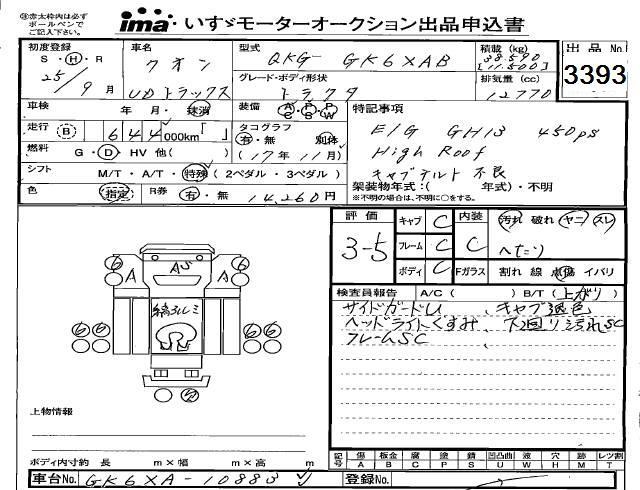 ※赤太枠内は必ずボールペンでご記入下さい。
ima いすゞモーターオークション出品申込書
初度登録 S・H・R 25年 9月
車名 クオン UDトラックス
型式 QKG- GK6XAB
積載 (kg) 38.590 [11.500]
出品 No. 3393
グレード・ボディ形状 トラクタ
排気量 (cc) 12770
車検 年・月・抹消
装備 A/C P/S P/W
特記事項
走行 B 644,000km「 」
タコグラフ 有・無 別体 (17年11月)
E/G GH13 450ps
High Roof
キャブチルト不良
燃料 G・D・HV 他( )
シフト M/T・A/T・特殊 (2ペダル・3ペダル)
架装物年式:( 年式)・不明
※不明の場合は、不明に○をする。
色 指定 R券 有・無 14,260円
評価 3-5
キャブ C
フレーム C
ボディ C
内装 C
Fガラス
汚れ 破れ ヤニ スレ
へたり
割れ 線 点傷 イバリ
検査員報告 A/C ( ) B/T (上がり)
サイドガードU、キャブ退色
ヘッドライトくすみ、下回り汚れSC
フレームSC
6 6 A A A5 6 6
縞ヌルミ
6 6 6 6
上物情報
ボディ内寸約 長 m×幅 m×高 m
記号 傷A 板金B 腐C 塗P 錆S 凹凸曲U 波W 穴H 欠M 跡X レツ割T
車台No. GK6XA-10883
登録No.